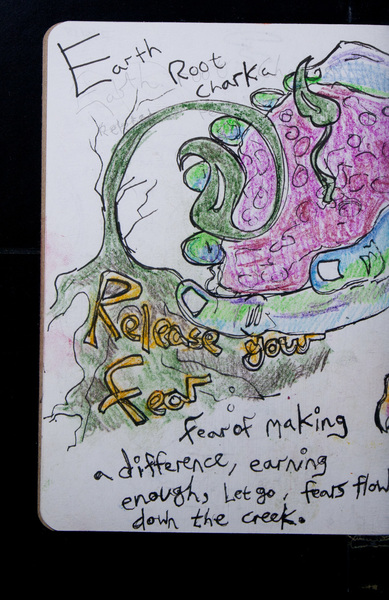 Earth
Root
charka
Release your
fear.
fear of making
a difference, earning
enough, Let go, fears flow
down the creek.